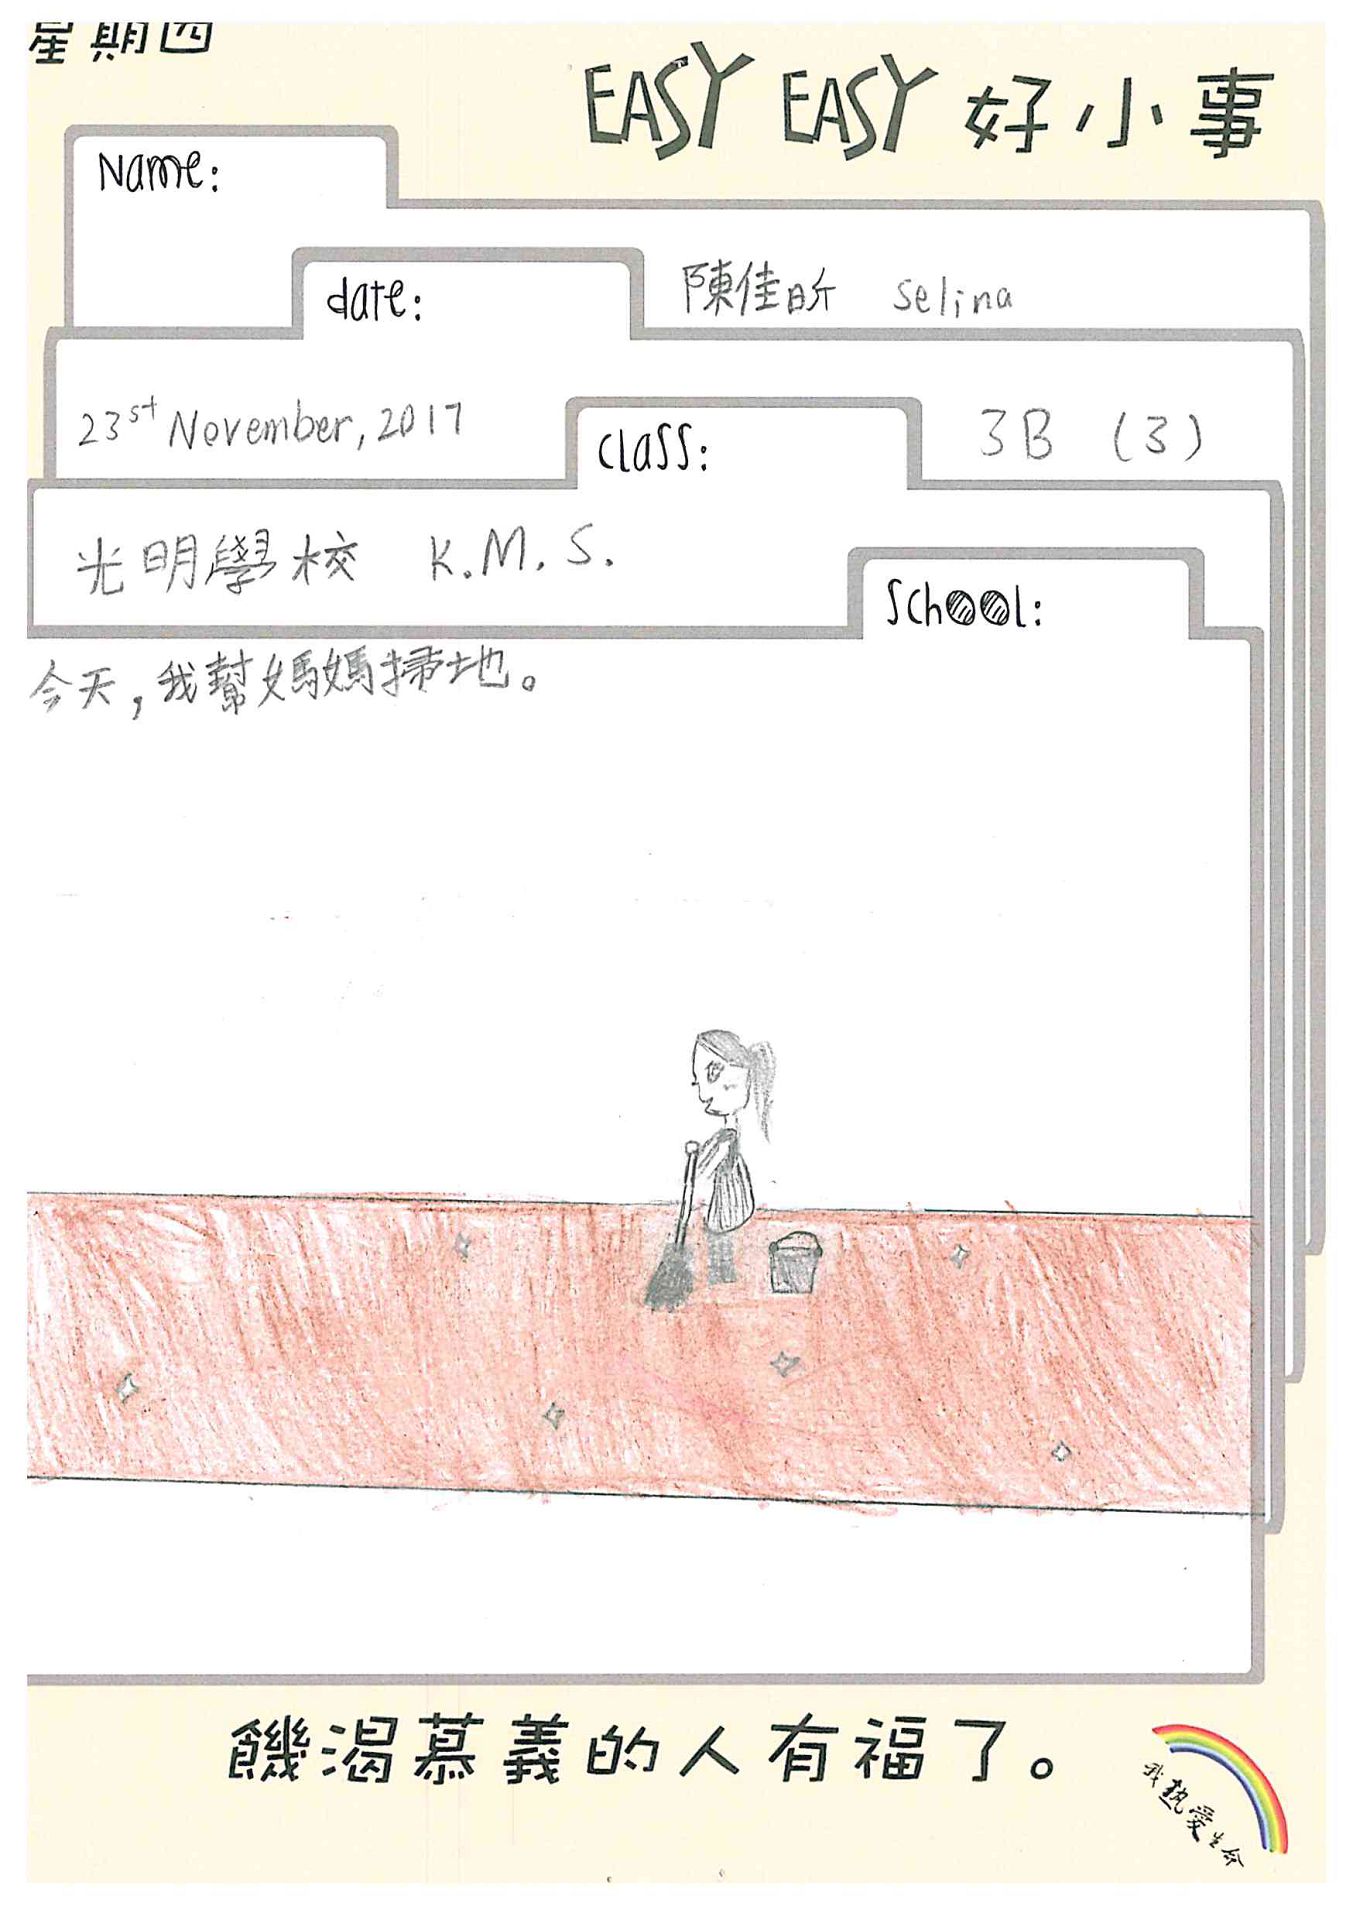 星期四
EASY EASY 好小事
Name:
陳佳昕 Selina
date:
23st November, 2017
class:
3B (3)
光明學校 K.M.S.
School:
今天,我幫媽媽掃地。
饑渴慕義的人有福了。
我熱愛生命